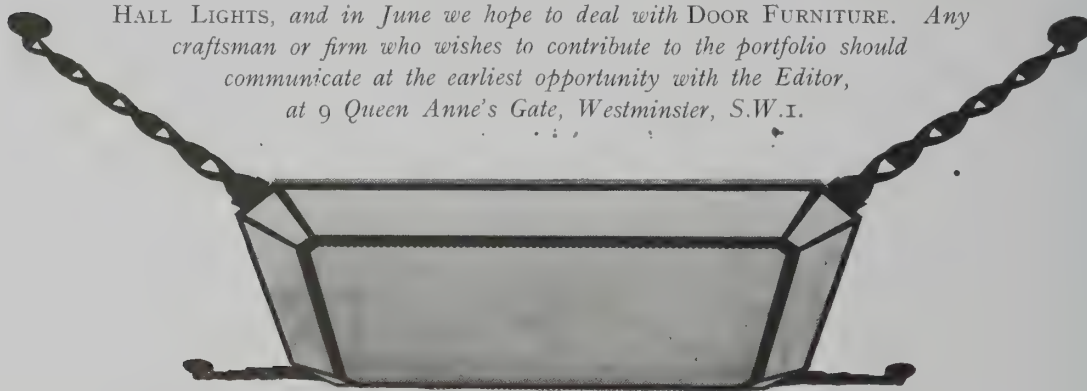 HALL LIGHTS, and in June we hope to deal with DOOR FURNITURE. Any
craftsman or firm who wishes to contribute to the portfolio should
communicate at the earliest opportunity with the Editor,
at 9 Queen Anne's Gate, Westminster, S.W.1.